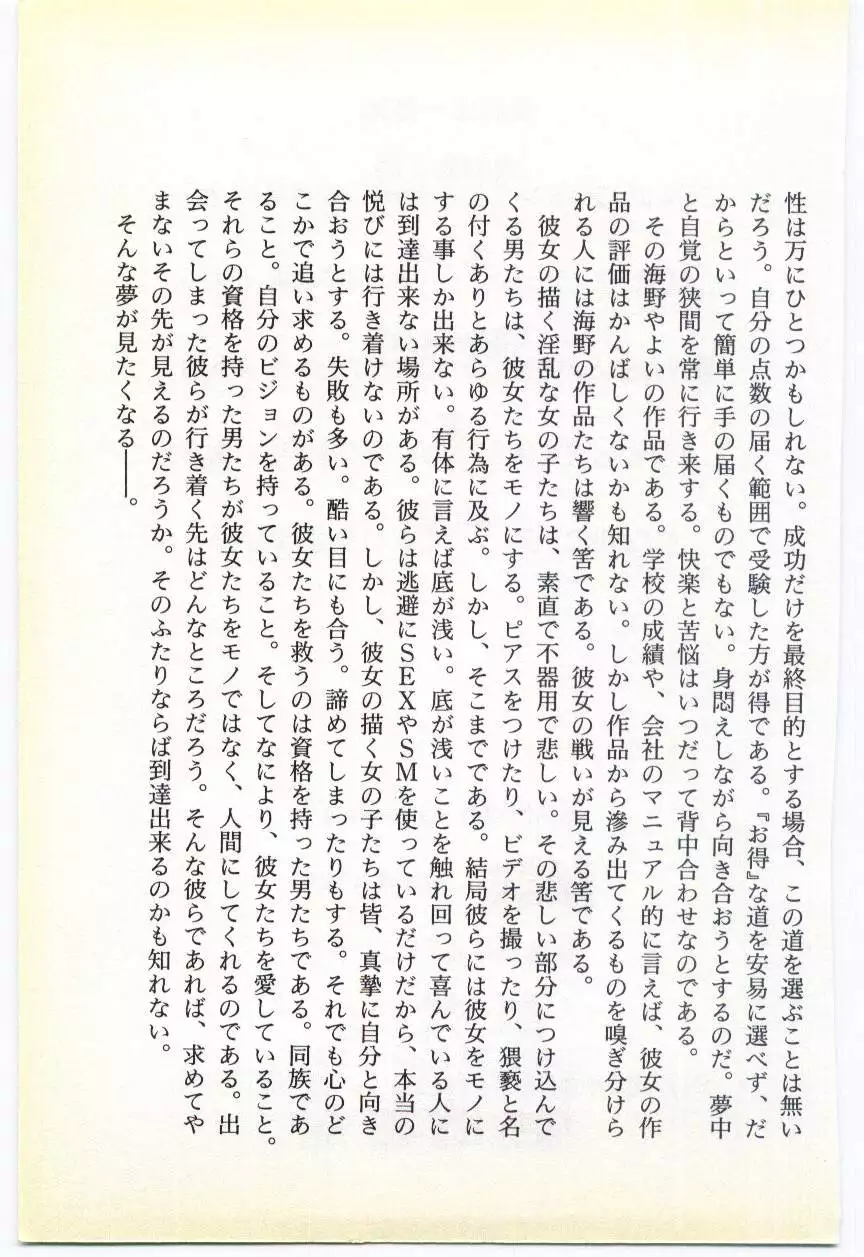 性は万にひとつかもしれない。成功だけを最終目的とする場合、この道を選ぶことは無い
だろう。自分の点数の届く範囲で受験した方が得である。『お得』な道を安易に選べず、だ
からといって簡単に手の届くものでもない。身悶えしながら向き合おうとするのだ。夢中
と自覚の狭間を常に行き来する。快楽と苦悩はいつだって背中合わせなのである。
その海野やよいの作品である。学校の成績や、会社のマニュアル的に言えば、彼女の作
品の評価はかんばしくないかも知れない。しかし作品から滲み出てくるものを嗅ぎ分けら
れる人には海野の作品たちは響く筈である。彼女の戦いが見える筈である。
彼女の描く淫乱な女の子たちは、素直で不器用で悲しい。その悲しい部分につけ込んで
くる男たちは、彼女たちをモノにする。ピアスをつけたり、ビデオを撮ったり、猥褻と名
の付くありとあらゆる行為に及ぶ。しかし、そこまでである。結局彼らには彼女をモノに
する事しか出来ない。有体に言えば底が浅い。底が浅いことを触れ回って喜んでいる人に
は到達出来ない場所がある。彼らは逃避にSEXやSMを使っているだけだから、本当の
悦びには行き着けないのである。しかし、彼女の描く女の子たちは皆、真摯に自分と向き
合おうとする。失敗も多い。酷い目にも合う。諦めてしまったりもする。それでも心のど
こかで追い求めるものがある。彼女たちを救うのは資格を持った男たちである。同族であ
ること。自分のビジョンを持っていること。そしてなにより、彼女たちを愛していること。
それらの資格を持った男たちが彼女たちをモノではなく、人間にしてくれるのである。出
会ってしまった彼らが行き着く先はどんなところだろう。そんな彼らであれば、求めてや
まないその先が見えるのだろうか。そのふたりならば到達出来るのかも知れない。
そんな夢が見たくなる――。